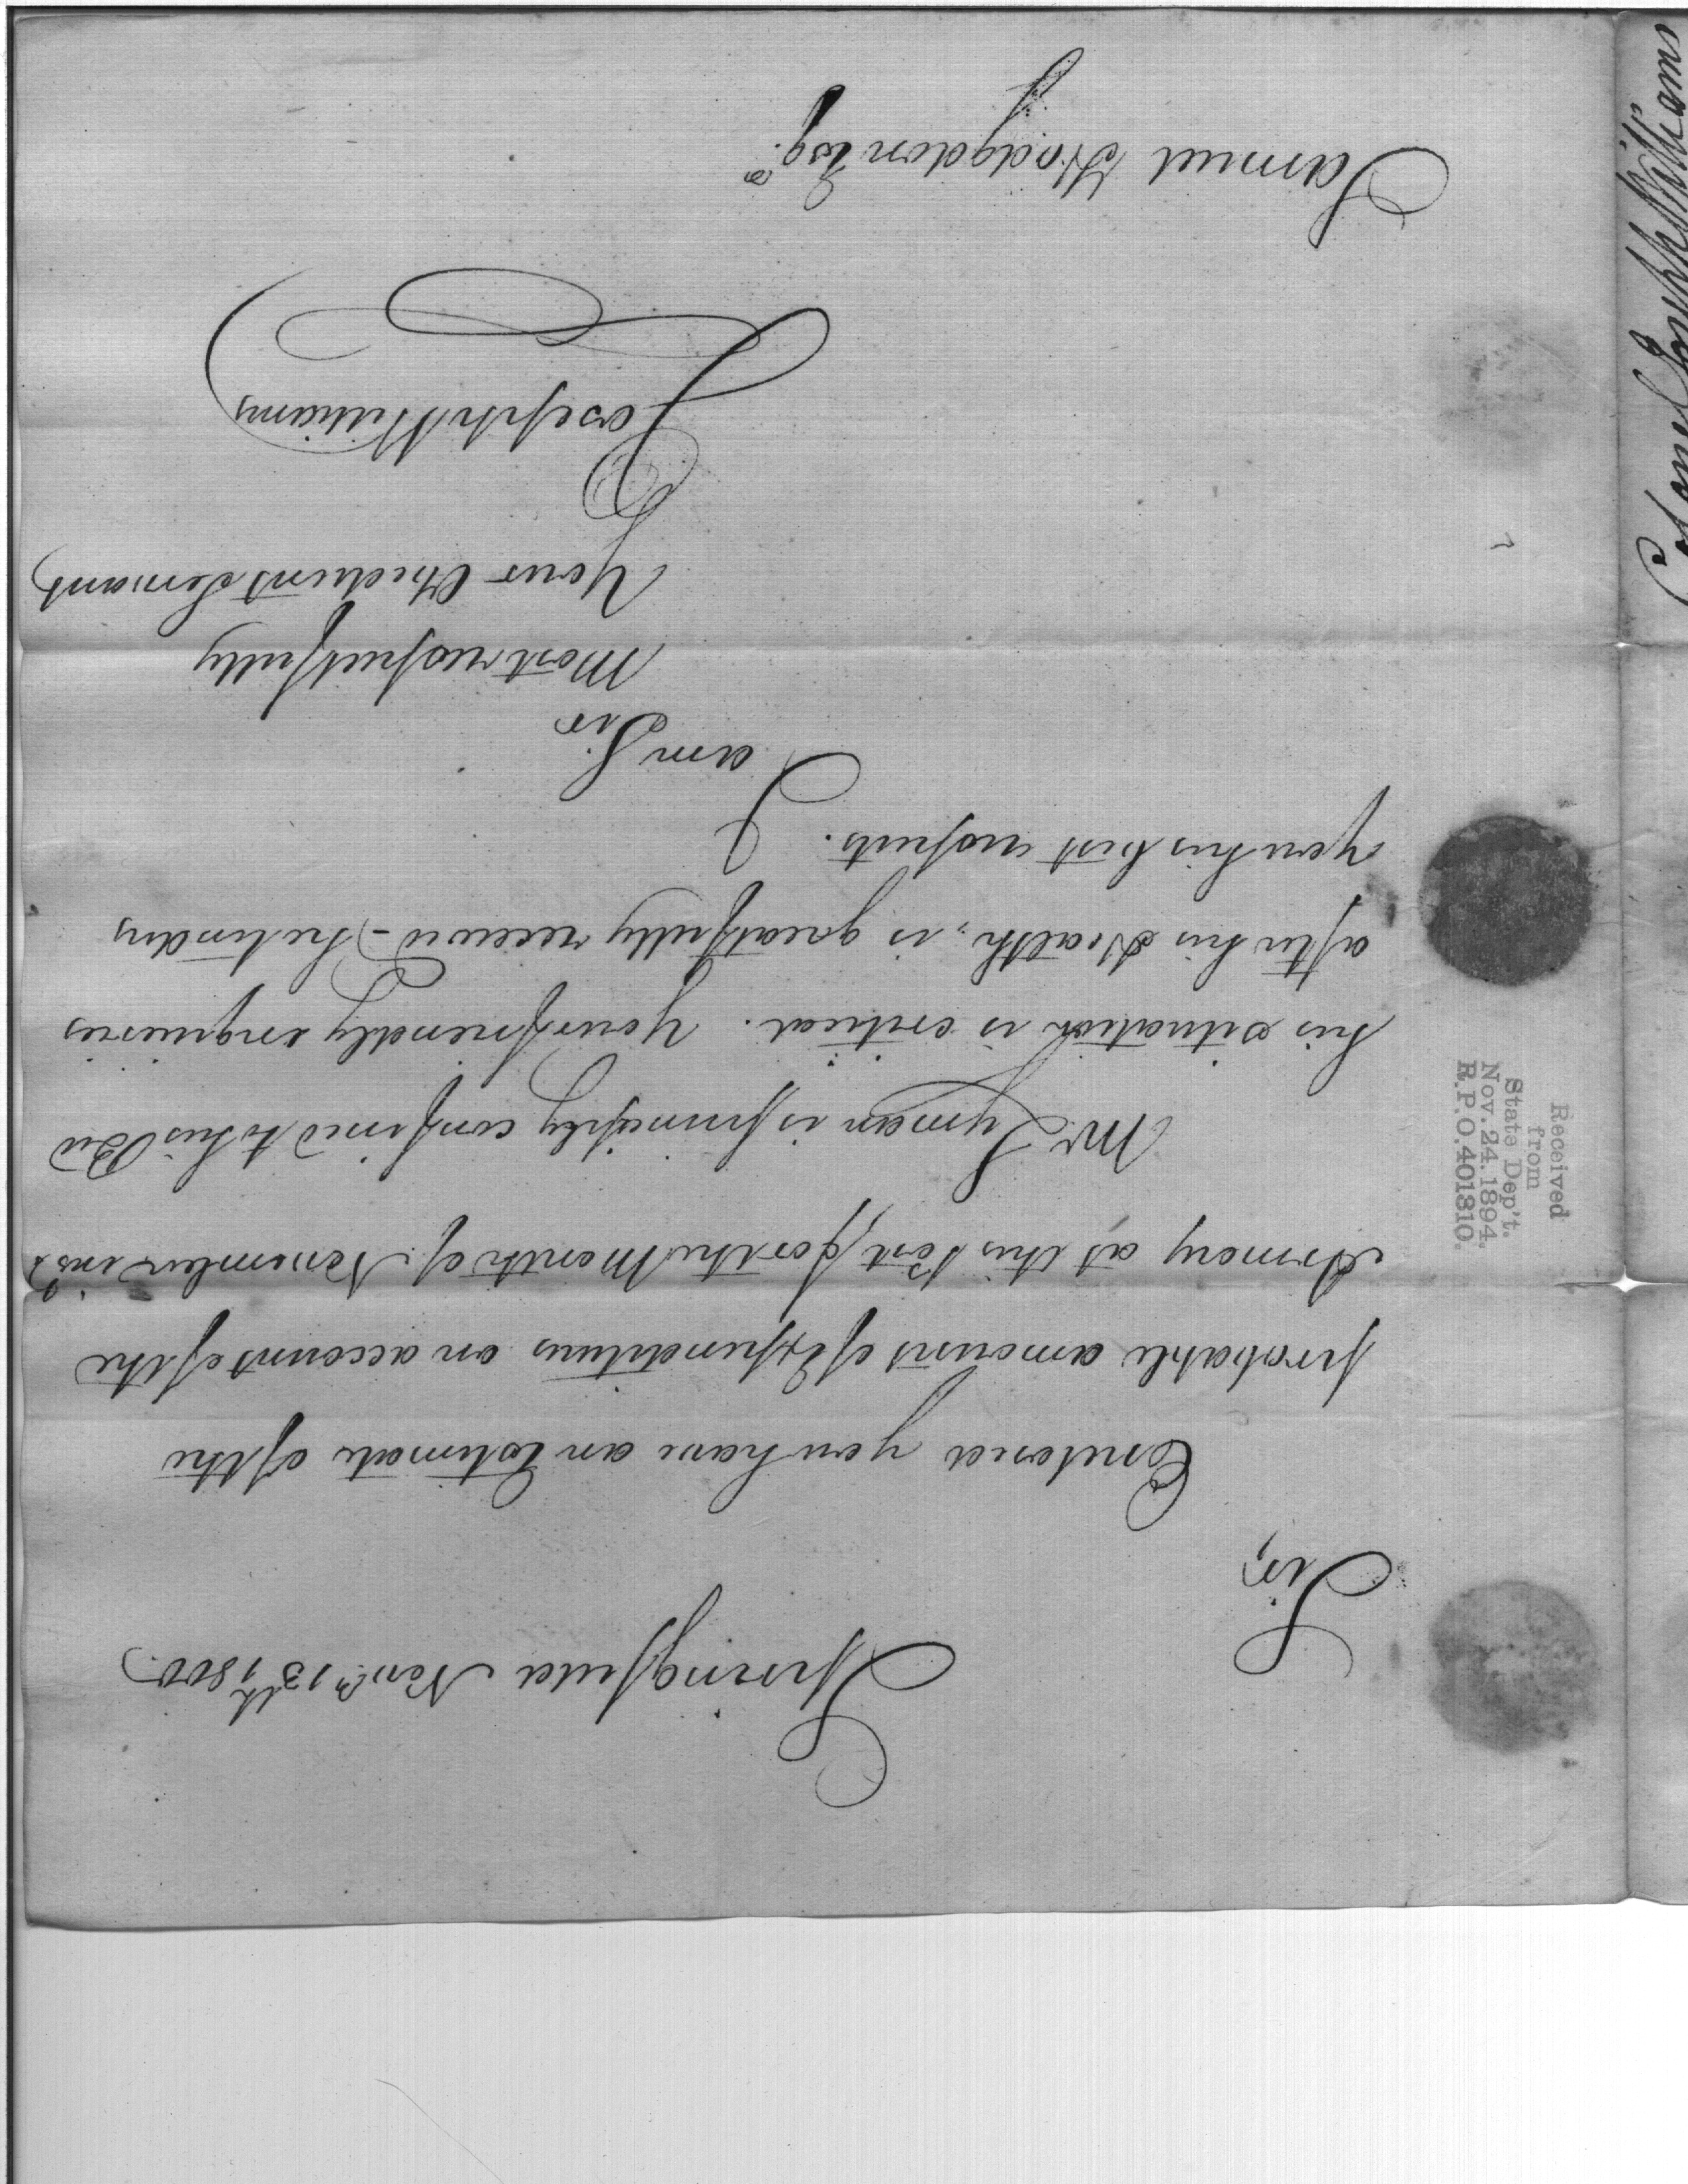 Springfield Novr. 13th, 1800.
Sir,
Enclosed you have an Estimate of the
probable amount of Expenditures on account of the
Armory at this Post, for the Month of November inst.
Mr. Lyman is principly confined to his Bed
his situation is critical. Your friendly enquieries
after his Health, is greatfully received - he tenders
you his best respects.
I
am Sir
Most respectfully
Your Obedient Servant,
Joseph Williams
Samuel Hodgdon Esqr.
Received
from
State Dep't.
Nov. 24. 1894.
R.P.O. 401310.
Colonel Joseph Williams